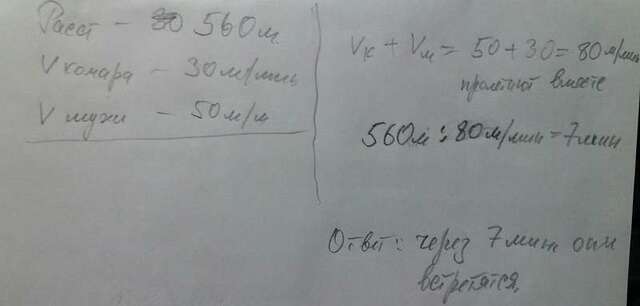 Расст - 560м
V комара - 30м/мин
V мухи - 50м/м
Vк + Vм = 50+30=80м/мин
пролетит вместе
560м : 80м/мин = 7мин
Ответ: через 7 мин они
встретятся.